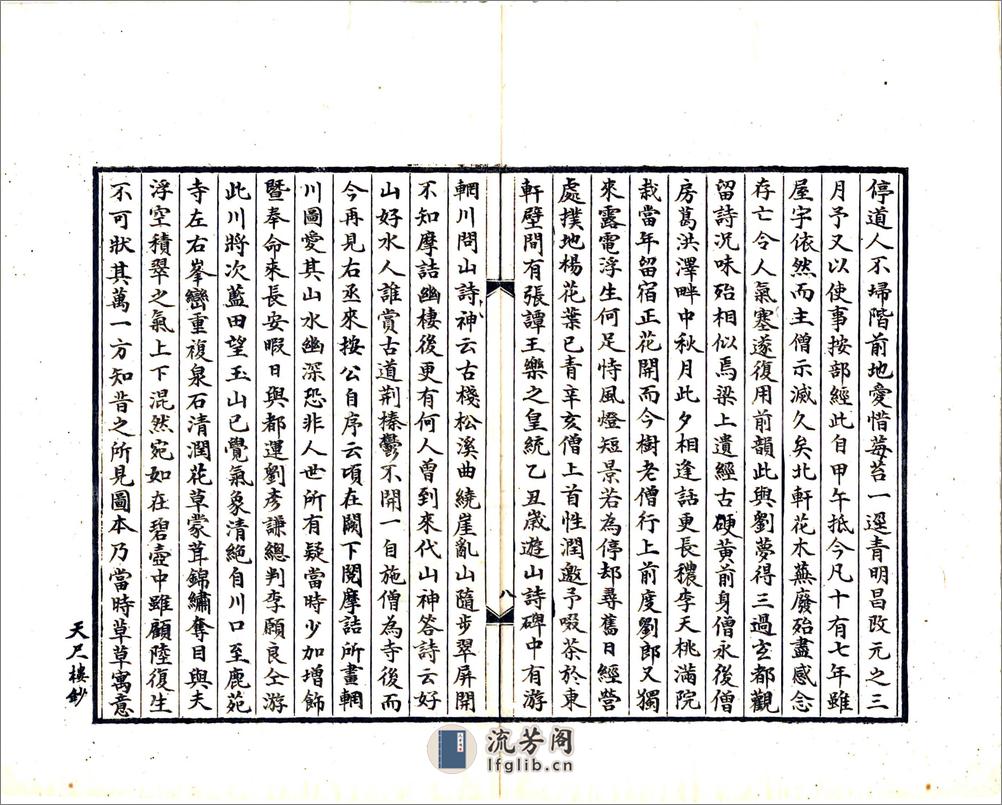 停道人不埽階前地愛惜莓苔一逕青明昌改元之三
月予又以使事按部經此自甲午抵今凡十有七年雖
屋宇依然而主僧示滅久矣北軒花木蕪廢殆盡感念
存亡令人氣塞遂復用前韻此與劉夢得三過玄都觀
留詩況味殆相似焉梁上遺經古硬黃前身僧永後僧
房葛洪澤畔中秋月此夕相逢話更長穠李夭桃滿院
栽當年留宿正花開而今樹老僧行上前度劉郎又獨
來露電浮生何足恃風燈短景若為停却尋舊日經營
處撲地楊花葉已青辛亥僧上首性潤邀予啜茶於東
軒壁間有張譚王樂之皇統乙丑歲遊山詩碑中有游
輞川問山詩神云古棧松溪曲繞崖亂山隨步翠屏開
不知摩詰幽棲後更有何人曾到來代山神答詩云好
山好水人誰賞古道荆榛鬱不開一自施僧為寺後而
今再見右丞來按公自序云頃在闕下閱摩詰所畫輞
川圖愛其山水幽深恐非人世所有疑當時少加增飾
暨奉命來長安暇日與都運劉彥謙總判李願良仝游
此川將次藍田望玉山已覺氣象清絕自川口至鹿苑
寺左右峯巒重複泉石清潤花草蒙茸錦繡奪目與夫
浮空積翠之氣上下混然宛如在碧壺中雖顧陸復生
不可狀其萬一方知昔之所見圖本乃當時草草寓意
八
天尺樓鈔
流芳阁
lfglib.cn